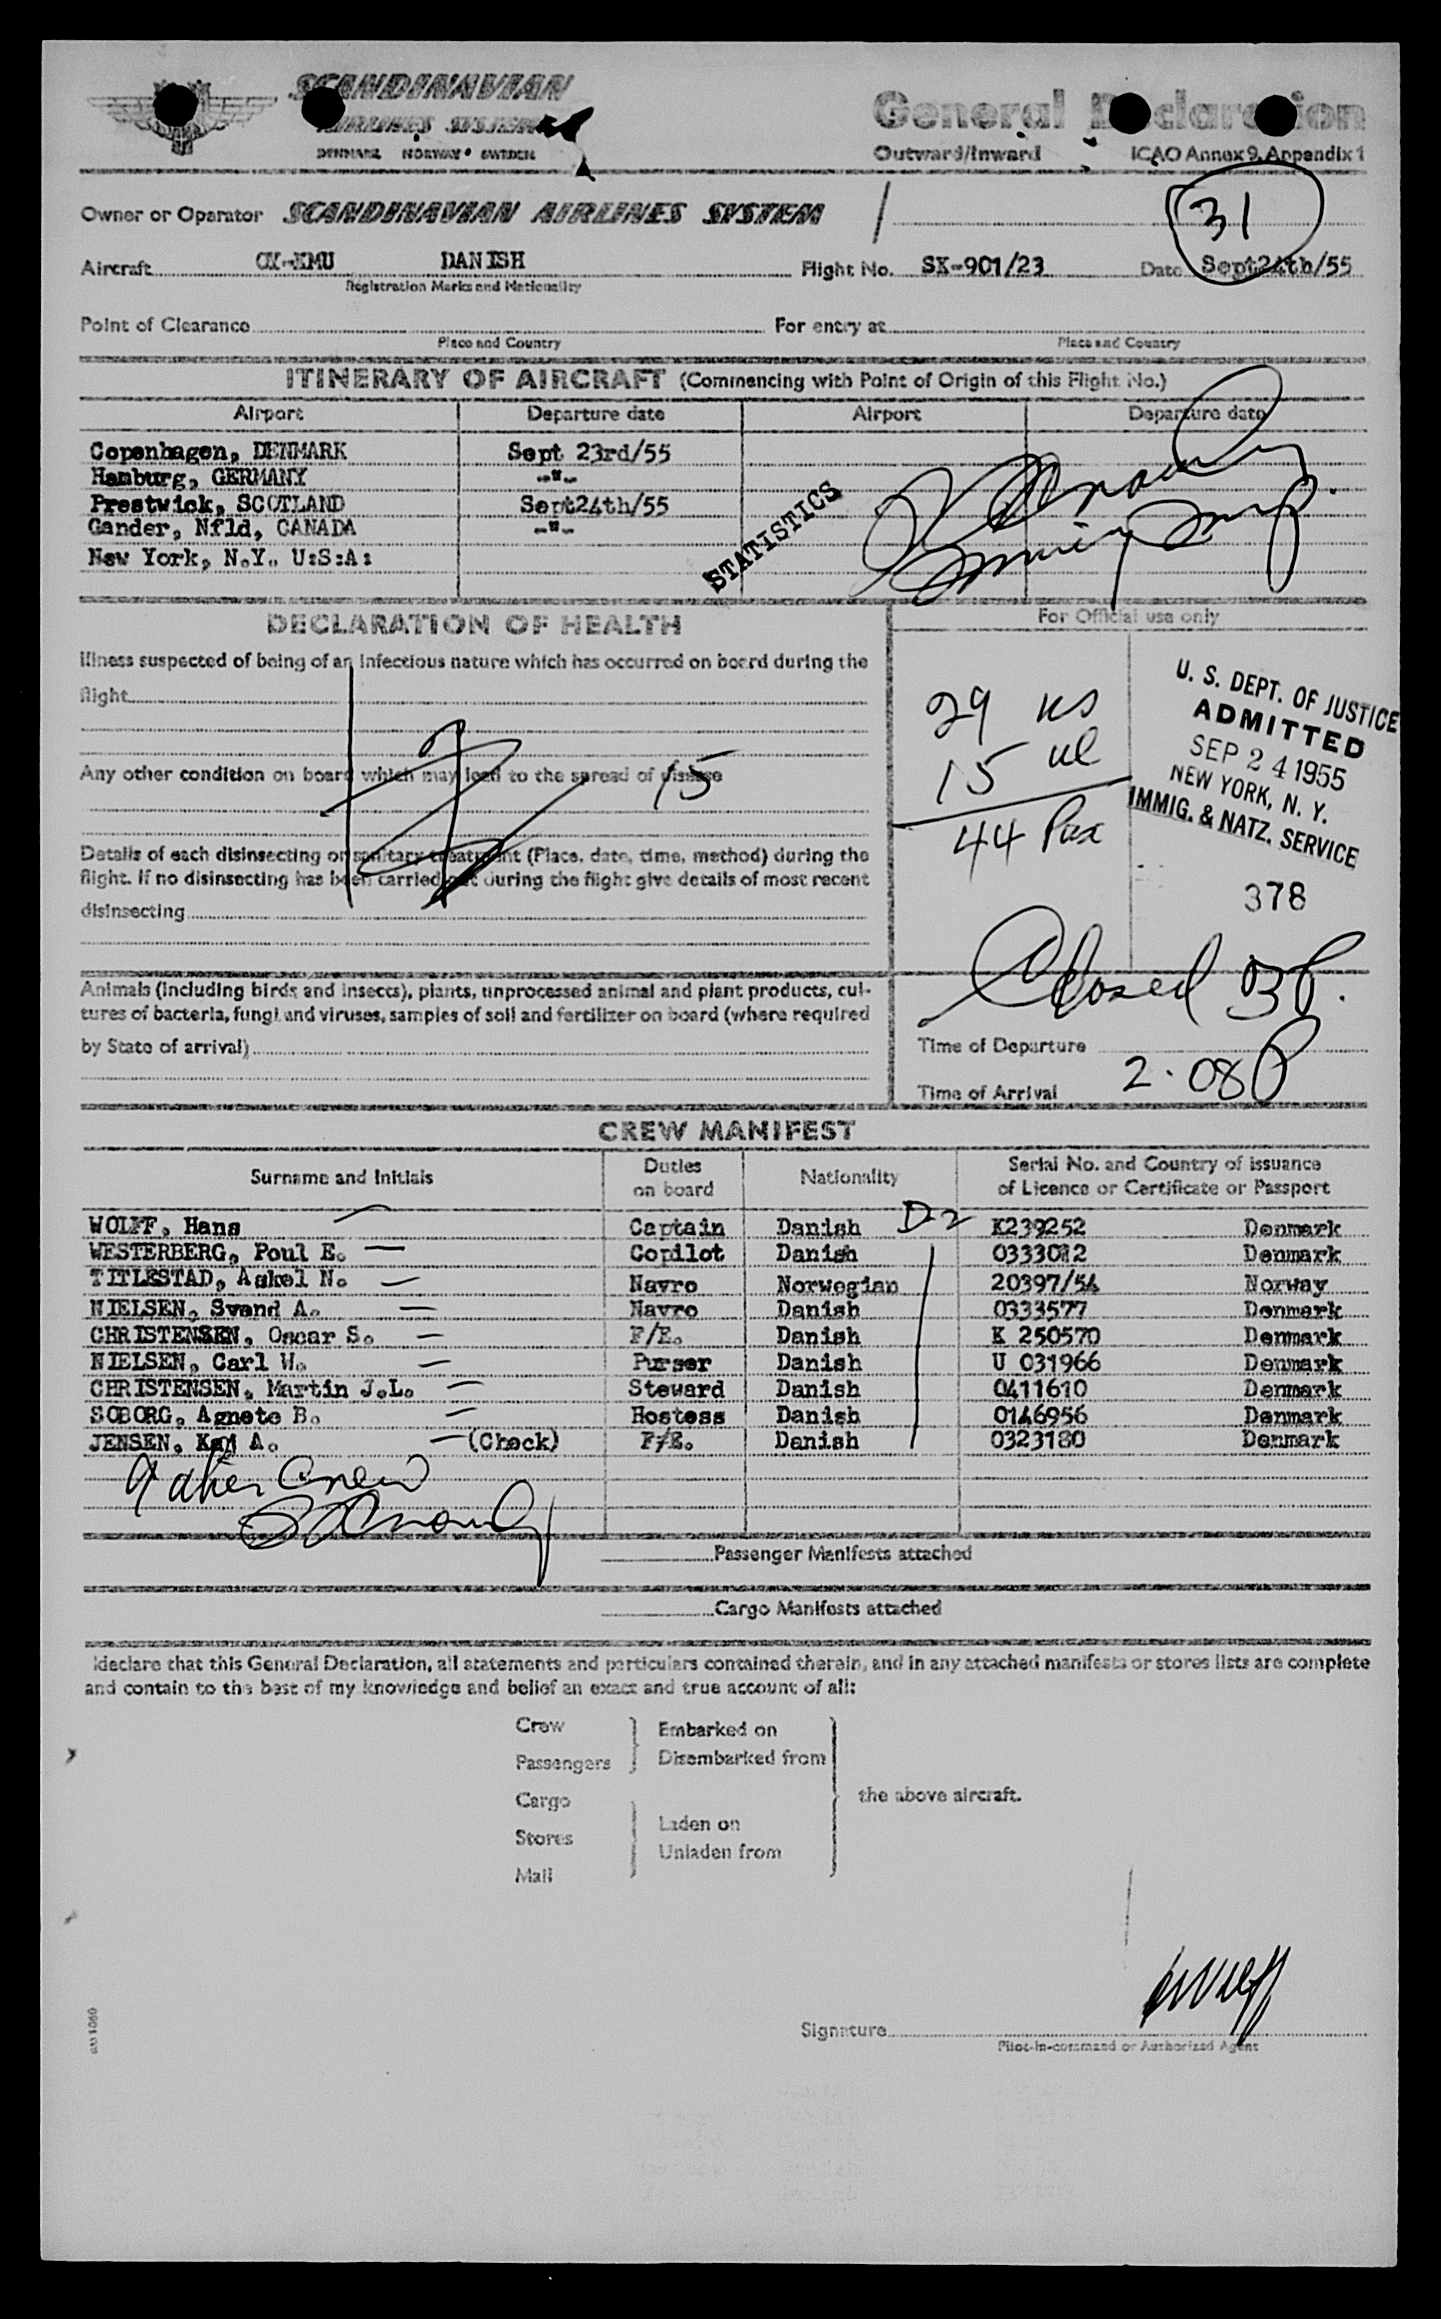 SCANDINAVIAN
AIRLINES SYSTEM
DENMARK NORWAY SWEDEN
General Declaration
Outward/Inward ICAO Annex 9, Appendix 1
31
Owner or Operator SCANDINAVIAN AIRLINES SYSTEM
Aircraft DANISH Flight No. SK-901/23 Date Sept24th/55
Registration Marks and Nationality
Point of Clearance For entry at
Place and Country Place and Country
ITINERARY OF AIRCRAFT (Commencing with Point of Origin of this Flight No.)
Airport Departure date Airport Departure date
Copenhagen, DENMARK Sept 23rd/55
Hamburg, GERMANY -"-
Prestwick, SCOTLAND Sept24th/55
Gander, Nfld, CANADA -"-
New York, N.Y. U:S:A:
STATISTICS
DECLARATION OF HEALTH
For Official use only
Illness suspected of being of an infectious nature which has occurred on board during the
flight
Any other condition on board which may lead to the spread of disease
15
Details of each disinsecting or sanitary treatment (Place, date, time, method) during the
flight. If no disinsecting has been carried out during the flight give details of most recent
disinsecting
29 us
15 ul
44 Pax
U. S. DEPT. OF JUSTICE
ADMITTED
SEP 24 1955
NEW YORK, N. Y.
IMMIG. & NATZ. SERVICE
378
Closed 3P.
Animals (including birds and insects), plants, unprocessed animal and plant products, cul-
tures of bacteria, fungi and viruses, samples of soil and fertilizer on board (where required
by State of arrival)
Time of Departure
Time of Arrival 2.08P
CREW MANIFEST
Surname and Initials Duties on board Nationality Serial No. and Country of issuance of Licence or Certificate or Passport
WOLFF, Hans Captain Danish D-2 K239252 Denmark
WESTERBERG, Poul E. Copilot Danish 0333082 Denmark
TITLESTAD, Askel N. Navro Norwegian 20397/54 Norway
NIELSEN, Svend A. Navro Danish 0333577 Denmark
CHRISTENSEN, Oscar S. F/E. Danish K 250570 Denmark
NIELSEN, Carl W. Purser Danish U 031966 Denmark
CHRISTENSEN, Martin J.L. Steward Danish 0411610 Denmark
SOBORG, Agnete B. Hostess Danish 0146956 Denmark
JENSEN, Kaj A. (Check) F/E. Danish 0323180 Denmark
Crew
Passenger Manifests attached
Cargo Manifests attached
I declare that this General Declaration, all statements and particulars contained therein, and in any attached manifests or stores lists are complete
and contain to the best of my knowledge and belief an exact and true account of all:
Crew
Passengers
Embarked on
Disembarked from
Cargo
Stores
Mail
Laden on
Unladen from
the above aircraft.
Signature
Pilot-in-command or Authorized Agent